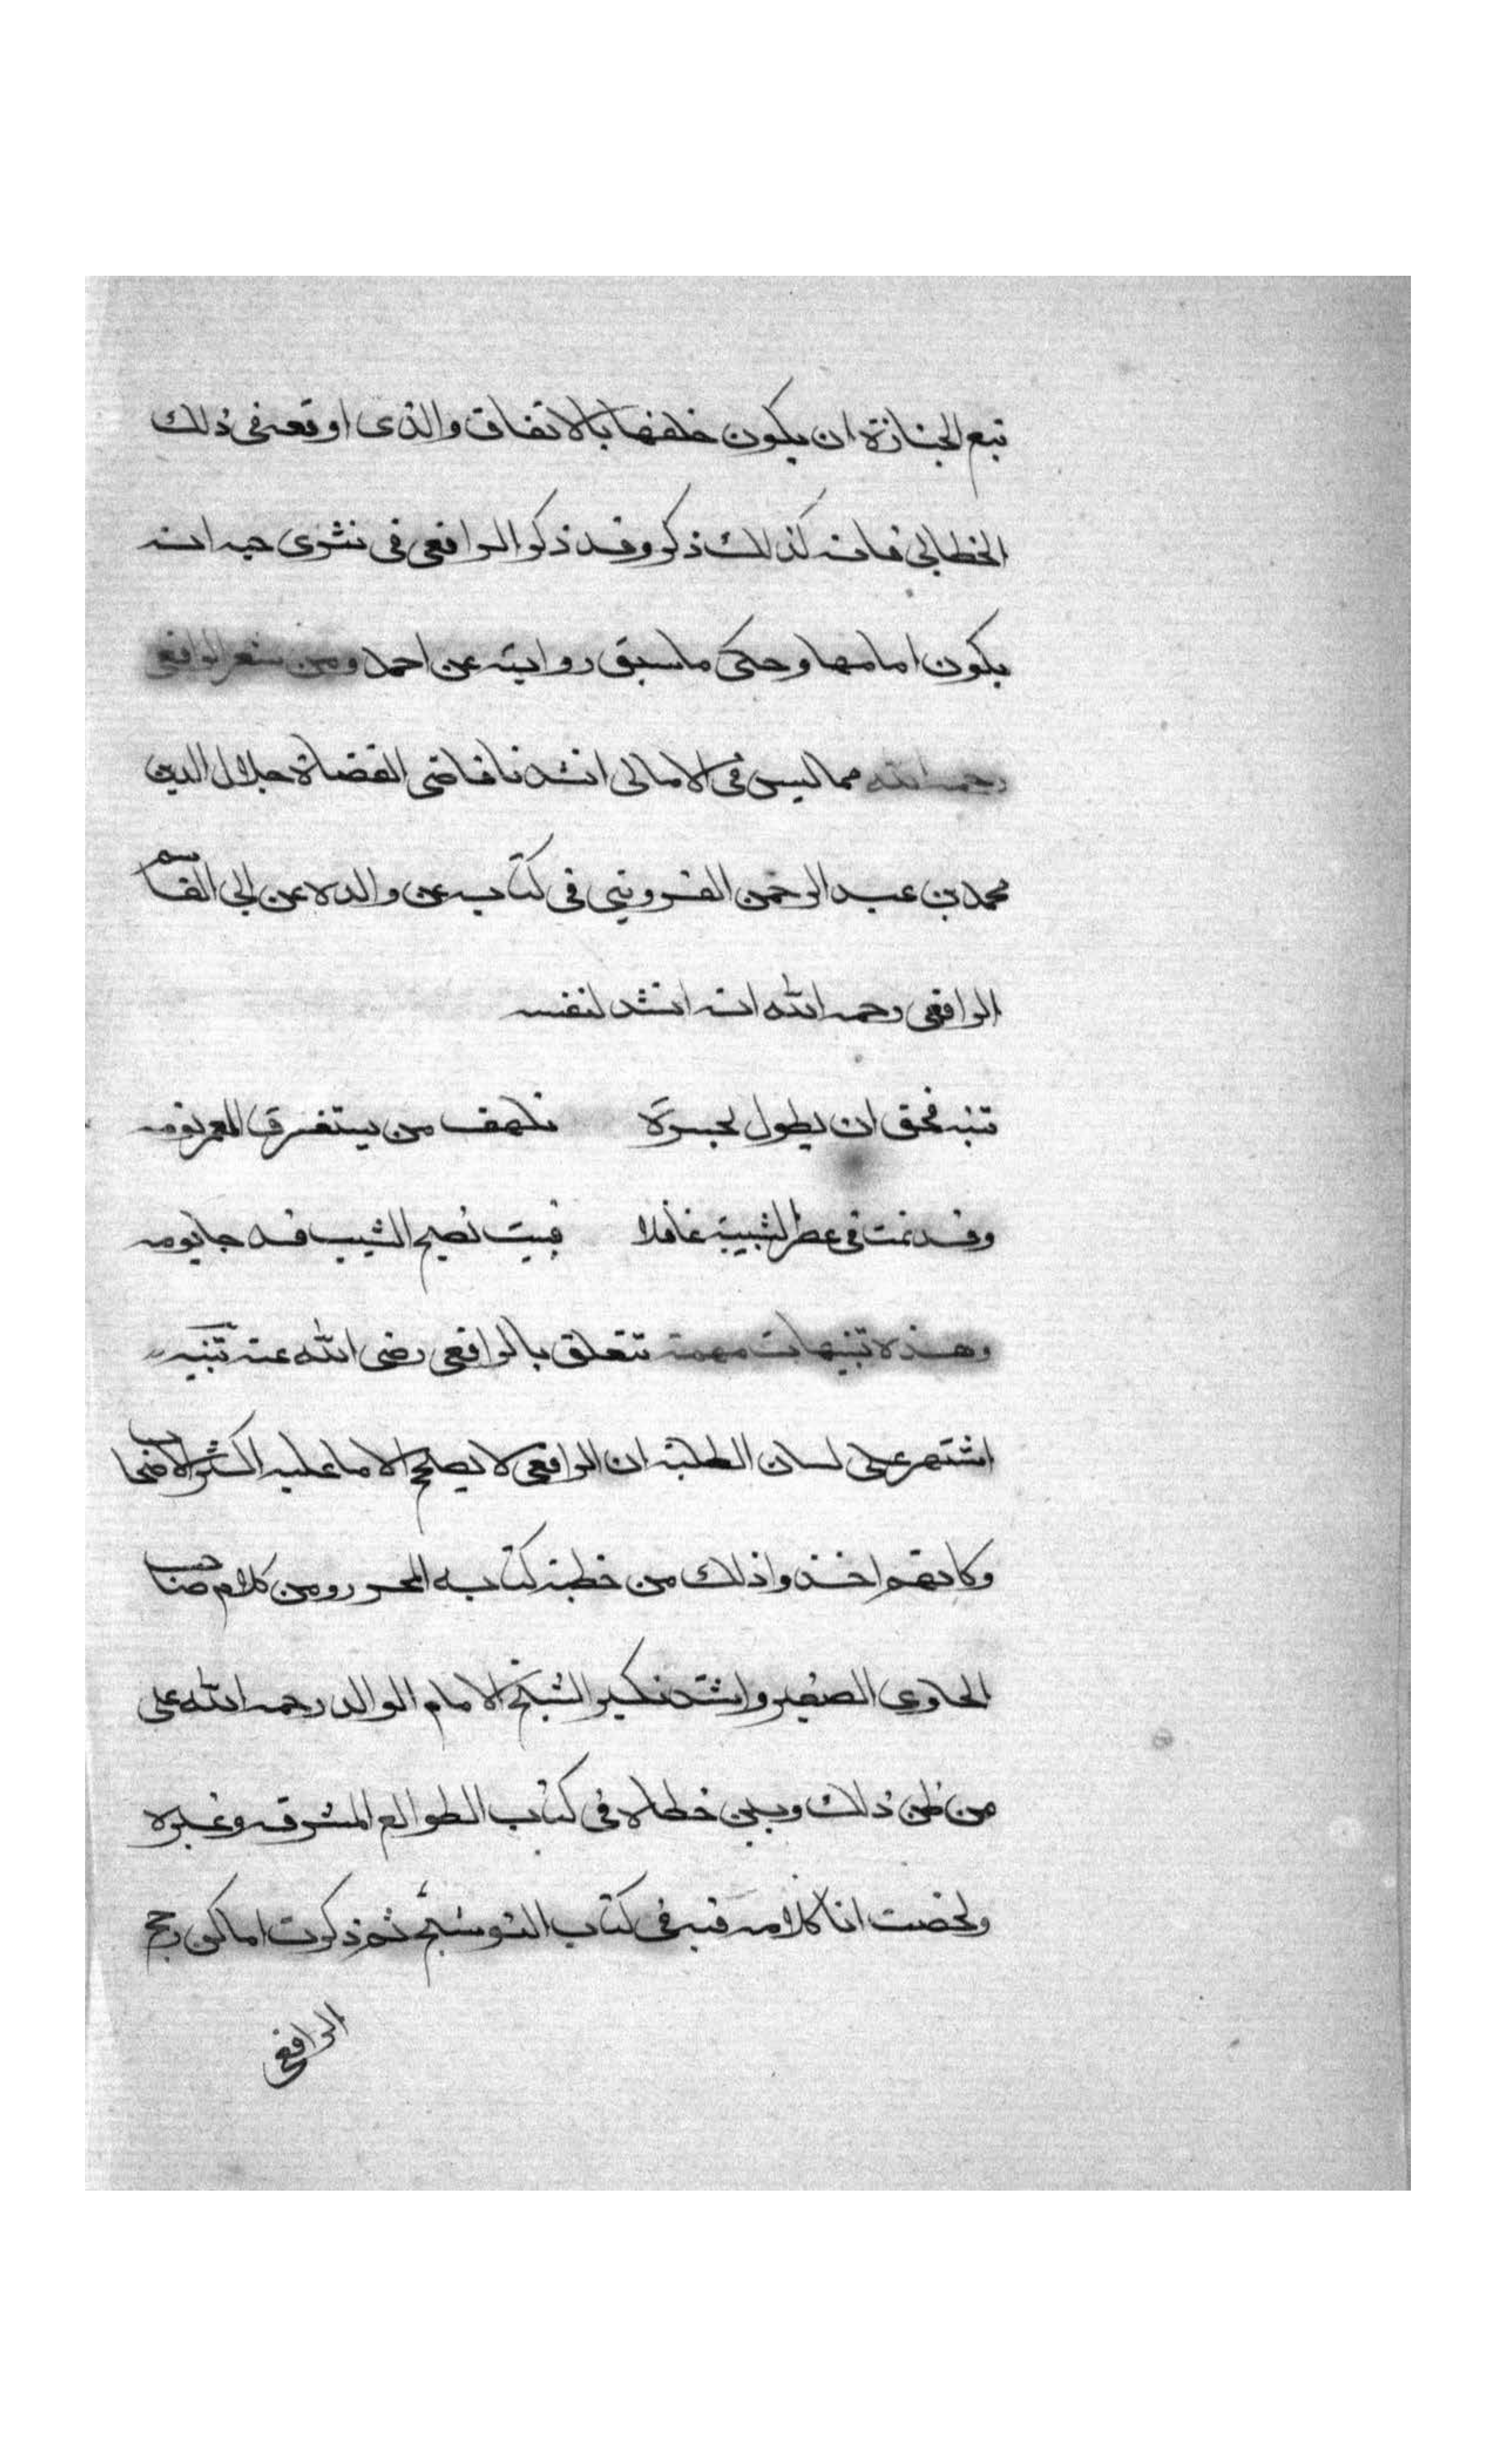 تبع الجنازة ان يكون خلفها بالاتفاق والذى اوقعه فى ذلك
الخطابى فانه كذلك ذكر وقد ذكر الرافعى فى انه
يكون امامها وحكى ما سبق روايته عن احمد ومن شعر الرافعى
رحمه الله مما ليس فى الامالى انشدنا قاضى القضاة جلال الدين
محمد بن عبد الرحمن القزوينى فى كتابه عن والده عن ابى القاسم
الرافعى رحمه الله انه انشد لنفسه
تنبه فحق ان يطول بحسرة تلهف من يستغرق العمر نومه
وقد نمت فى عصر الشبيبة غافلا فهب نصيح الشيب قد جا يومه
وهذه تنبيهات مهمة تتعلق بالرافعى رضى الله عنه تنبيه
اشتهر على لسان الطلبة ان الرافعى لا يصحح الا ما عليه اكثر الاصحاب
وكانهم اخذوا ذلك من خطبة كتابه المحرر ومن كلام صاحب
الحاوى الصغير واشتد نكير الشيخ الامام الوالد رحمه الله على
من ظن ذلك وبين خطاه فى كتاب الطوالع المشرقه وغيره
ولخصت انا كلامه فيه فى كتاب التوشيح ثم ذكرت اماكن رجح
الرافعى